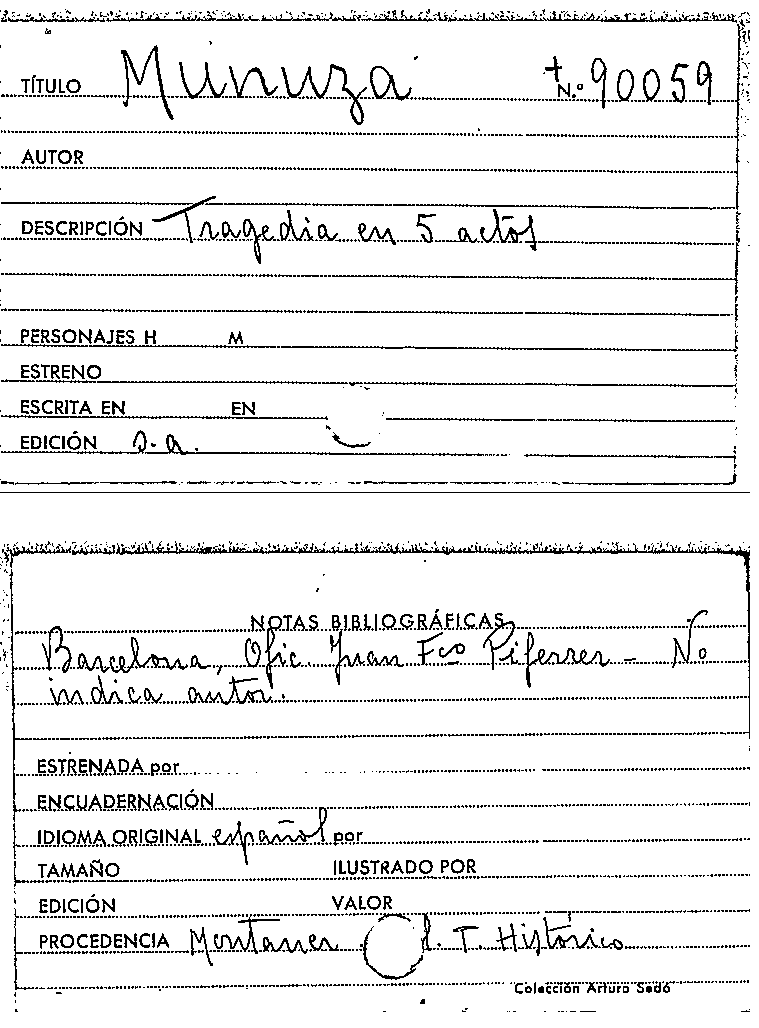 TÍTULO Munuza N.º 90059
AUTOR
DESCRIPCIÓN Tragedia en 5 actos
PERSONAJES H M
ESTRENO
ESCRITA EN EN
EDICIÓN s.a.
NOTAS BIBLIOGRÁFICAS
Barcelona, Ofic Juan Fco Piferrer - No
indica autor.
ESTRENADA por
ENCUADERNACIÓN
IDIOMA ORIGINAL español por
TAMAÑO ILUSTRADO POR
EDICIÓN VALOR
PROCEDENCIA Montaner. T. Histórico
Colección Arturo Sedó